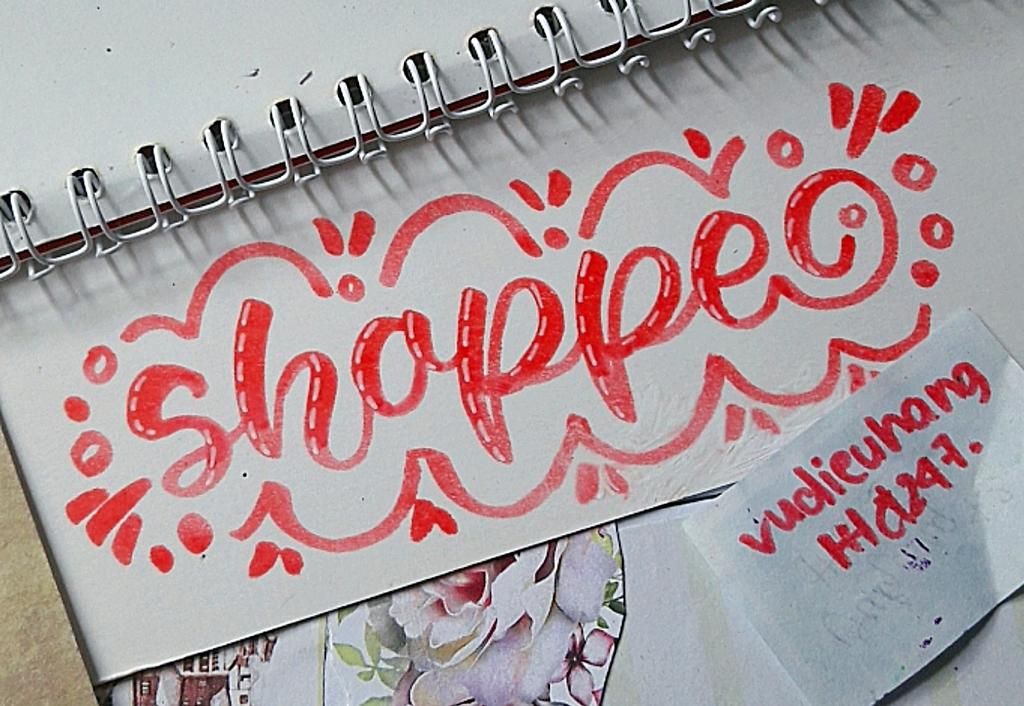 shoppe
vudieuhang
Hd247.